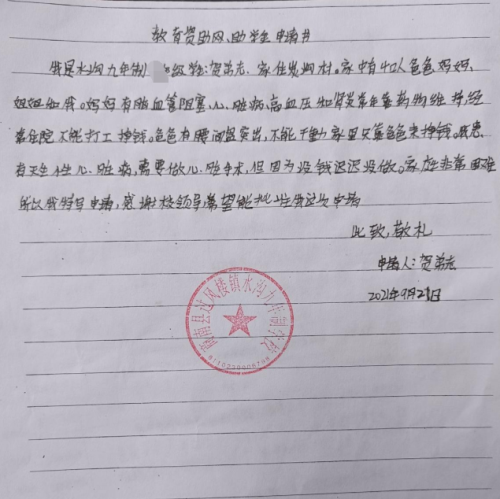 教育资助网、助学生申请书
我是水沟九年制 级学生:贺芾龙。家住发洞村。家中有4口人爸爸妈妈,
姐姐和我。妈妈有脑血管阻塞,心脏病,高血压和肾炎常年靠药物维持,经
常住院不能打工挣钱。爸爸有腰间盘突出,不能干重力家里只靠爸爸来挣钱。我患
有天生性心脏病,需要做心脏手术,但因为没钱迟迟没做。家庭非常困难
所以我特写申请,感谢校领导希望能批准我这次申请
此致,敬礼
申请人:贺芾龙
2021年9月27日
商南县过风楼镇水沟九年制学校